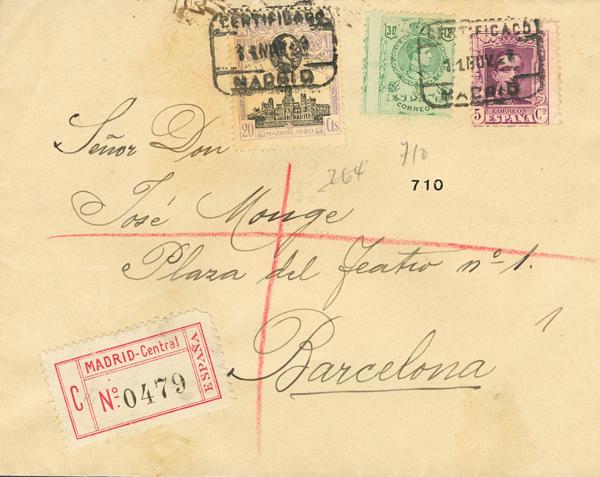 CERTIFICADO
MADRID
20 Cts
MADRID, 1920
30
CORREOS
CERTIFICADO
MADRID
CORREOS
ESPAÑA
5 Cs
Señor Don
264
710
710
José Monge
Plaza del Teatro nº 1.
Barcelona
MADRID-Central
C
Nº: 0479
ESPAÑA